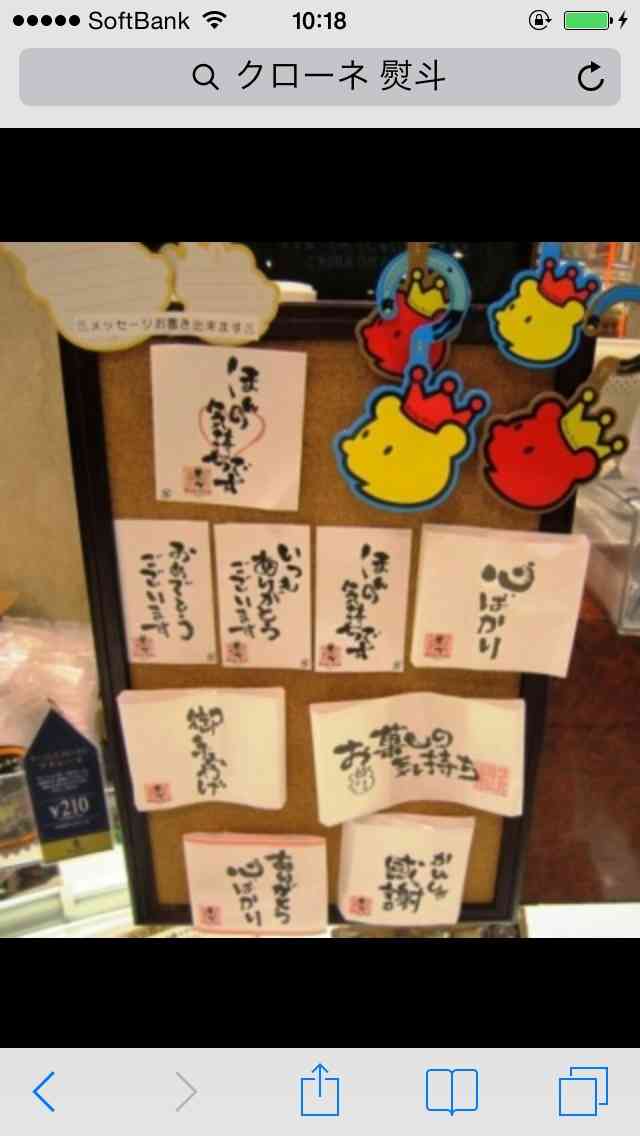 SoftBank
10:18
クローネ 熨斗
メッセージお書き出来ます
ほんの
気持
ちです
おめでとう
ございます
いつも
ありがとう
ございます
ほんの
気持
ちです
心ばかり
御みやげ
お慕しの
気持ち
¥210
ありがとう
心ばかり
かんしゃ
感謝